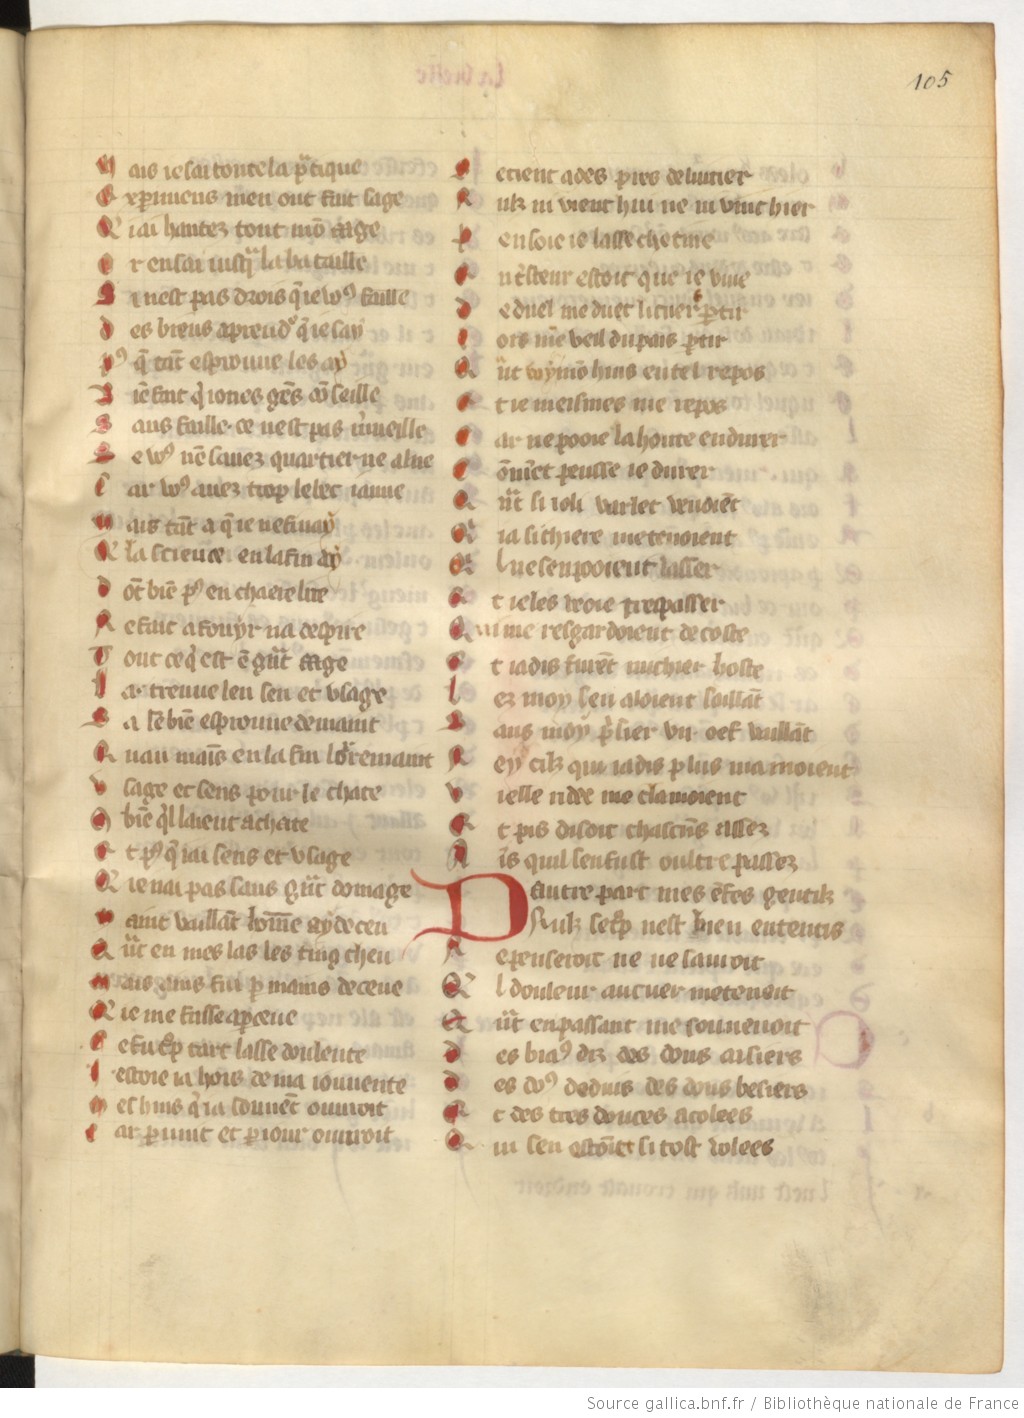 105
M ais ie sai toute la p̃tique
E xp̃imens men ont fait sage
Q iai hantez tout mõ aage
O r en sai iusq̃ la bataille
S i nest pas drois q̃ ie voꝰ faille
d es biens aprend̾ q̃ ie say
pꝰ q̃ tãt esprouue les ay
B iẽ fait q̾ iones gẽs cõseille
S ans faille ce nest pas m̾ueille
S e voꝰ nẽ sauez quartier ne alne
C ar voꝰ auez trop le bec iaune
M ais tãt a q̃ ie ne finay
Q la science en la fin ay
d õt biẽ pꝰ en chaeie lire
N e fait a fouyr na despire
T out ce q̾ est ẽ g̾ñt aage
L a treuue len sen et vsage
S a lẽ biẽ esprouue de maint
Q uau mais̃ en la fin lor remaint
v sage et sens pour le chate
C õbiẽ q̾l laient achate
E t pꝰ q̃ iai sens et vsage
Q ie nai pas sans g̾ñt domage
M aint vaillãt hõme ay deceu
Q ñt en mes las les ting cheu
M ais ains fui p̱ mains deceue
Q ie me fusse ap̱ceue
C e fu tp̱ tart lasse doulente
I estoie ia hors de ma iouuente
M es huis q̾ ia souuẽt ouuroit
C ar p̱ nuit et p̱ iour ouuroit
S e tient ades pres de luitier
N ulz ni vient hui ne ni vint hier
P ensoie ie lasse chetiue
E n tsteur estoit que ie viue
d e duel me duet li cuers p̱tir
L ors me veil du pais p̱tir
Q ñt vy mõ huis en tel repos
E t ie meismes me repos
C ar ne pooie la honte endurer
C õmẽt peusse ie durer
Q ñt si ioli varlet venoiẽt
Q ia si chiere me tenoient
Q l ne sen pooient lasser
E t ie les veoie trespasser
Q ui me resgardoient de coste
E t iadis furẽt mi chier hoste
L ez moy sen aloient saillãt
S ans moy p̾sier vn oef vaillãt
N ey cilz qui iadis plus mamoient
v ielle ridee me clamoient
E t pis disoit chascũs assez
A is quil sen fust oultre passez
D autre part mes ẽfes gentilz
Nulz se tp̱ nest bien ententis
N e penseroit ne ne sauroit
Q l douleur au cuer me tenoit
Q ñt en passant me souuenoit
d es biaꝰ diz des dous aisiers
d es doꝰ deduis des dous besiers
E t des tres douces acolees
Q ui sen estoiẽt si tost volees
Source gallica.bnf.fr / Bibliothèque nationale de France